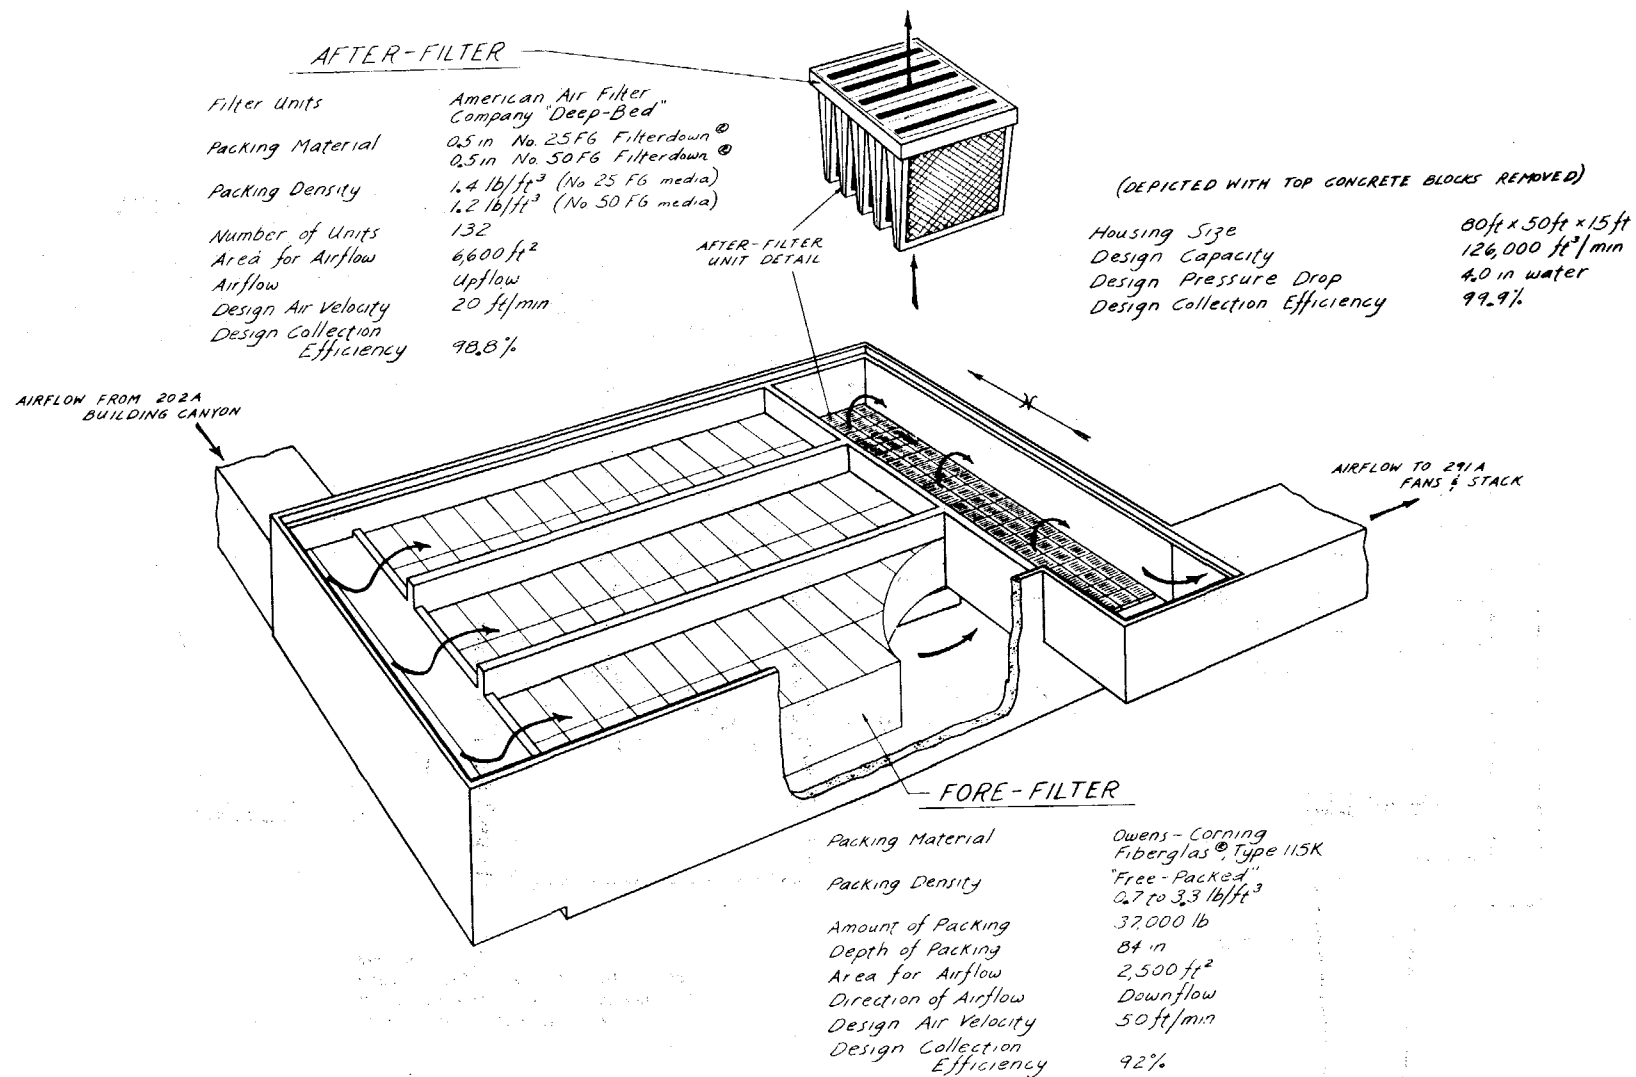 AFTER-FILTER
Filter Units American Air Filter
Company "Deep-Bed"
Packing Material 0.5 in No. 25FG Filterdown ®
0.5 in No. 50FG Filterdown ®
Packing Density 1.4 lb/ft³ (No 25 FG media)
1.2 lb/ft³ (No 50 FG media)
Number of Units 132
Area for Airflow 6,600 ft²
Airflow Upflow
Design Air Velocity 20 ft/min
Design Collection
Efficiency 98.8%
AFTER-FILTER
UNIT DETAIL
(DEPICTED WITH TOP CONCRETE BLOCKS REMOVED)
Housing Size 80ft x 50ft x 15ft
Design Capacity 126,000 ft³/min
Design Pressure Drop 4.0 in water
Design Collection Efficiency 99.9%
AIRFLOW FROM 202A
BUILDING CANYON
AIRFLOW TO 291A
FANS & STACK
FORE-FILTER
Packing Material Owens-Corning
Fiberglas®, Type 115K
Packing Density "Free-Packed"
0.7 to 3.3 lb/ft³
Amount of Packing 37,000 lb
Depth of Packing 84 in
Area for Airflow 2,500 ft²
Direction of Airflow Downflow
Design Air Velocity 50 ft/min
Design Collection
Efficiency 92%